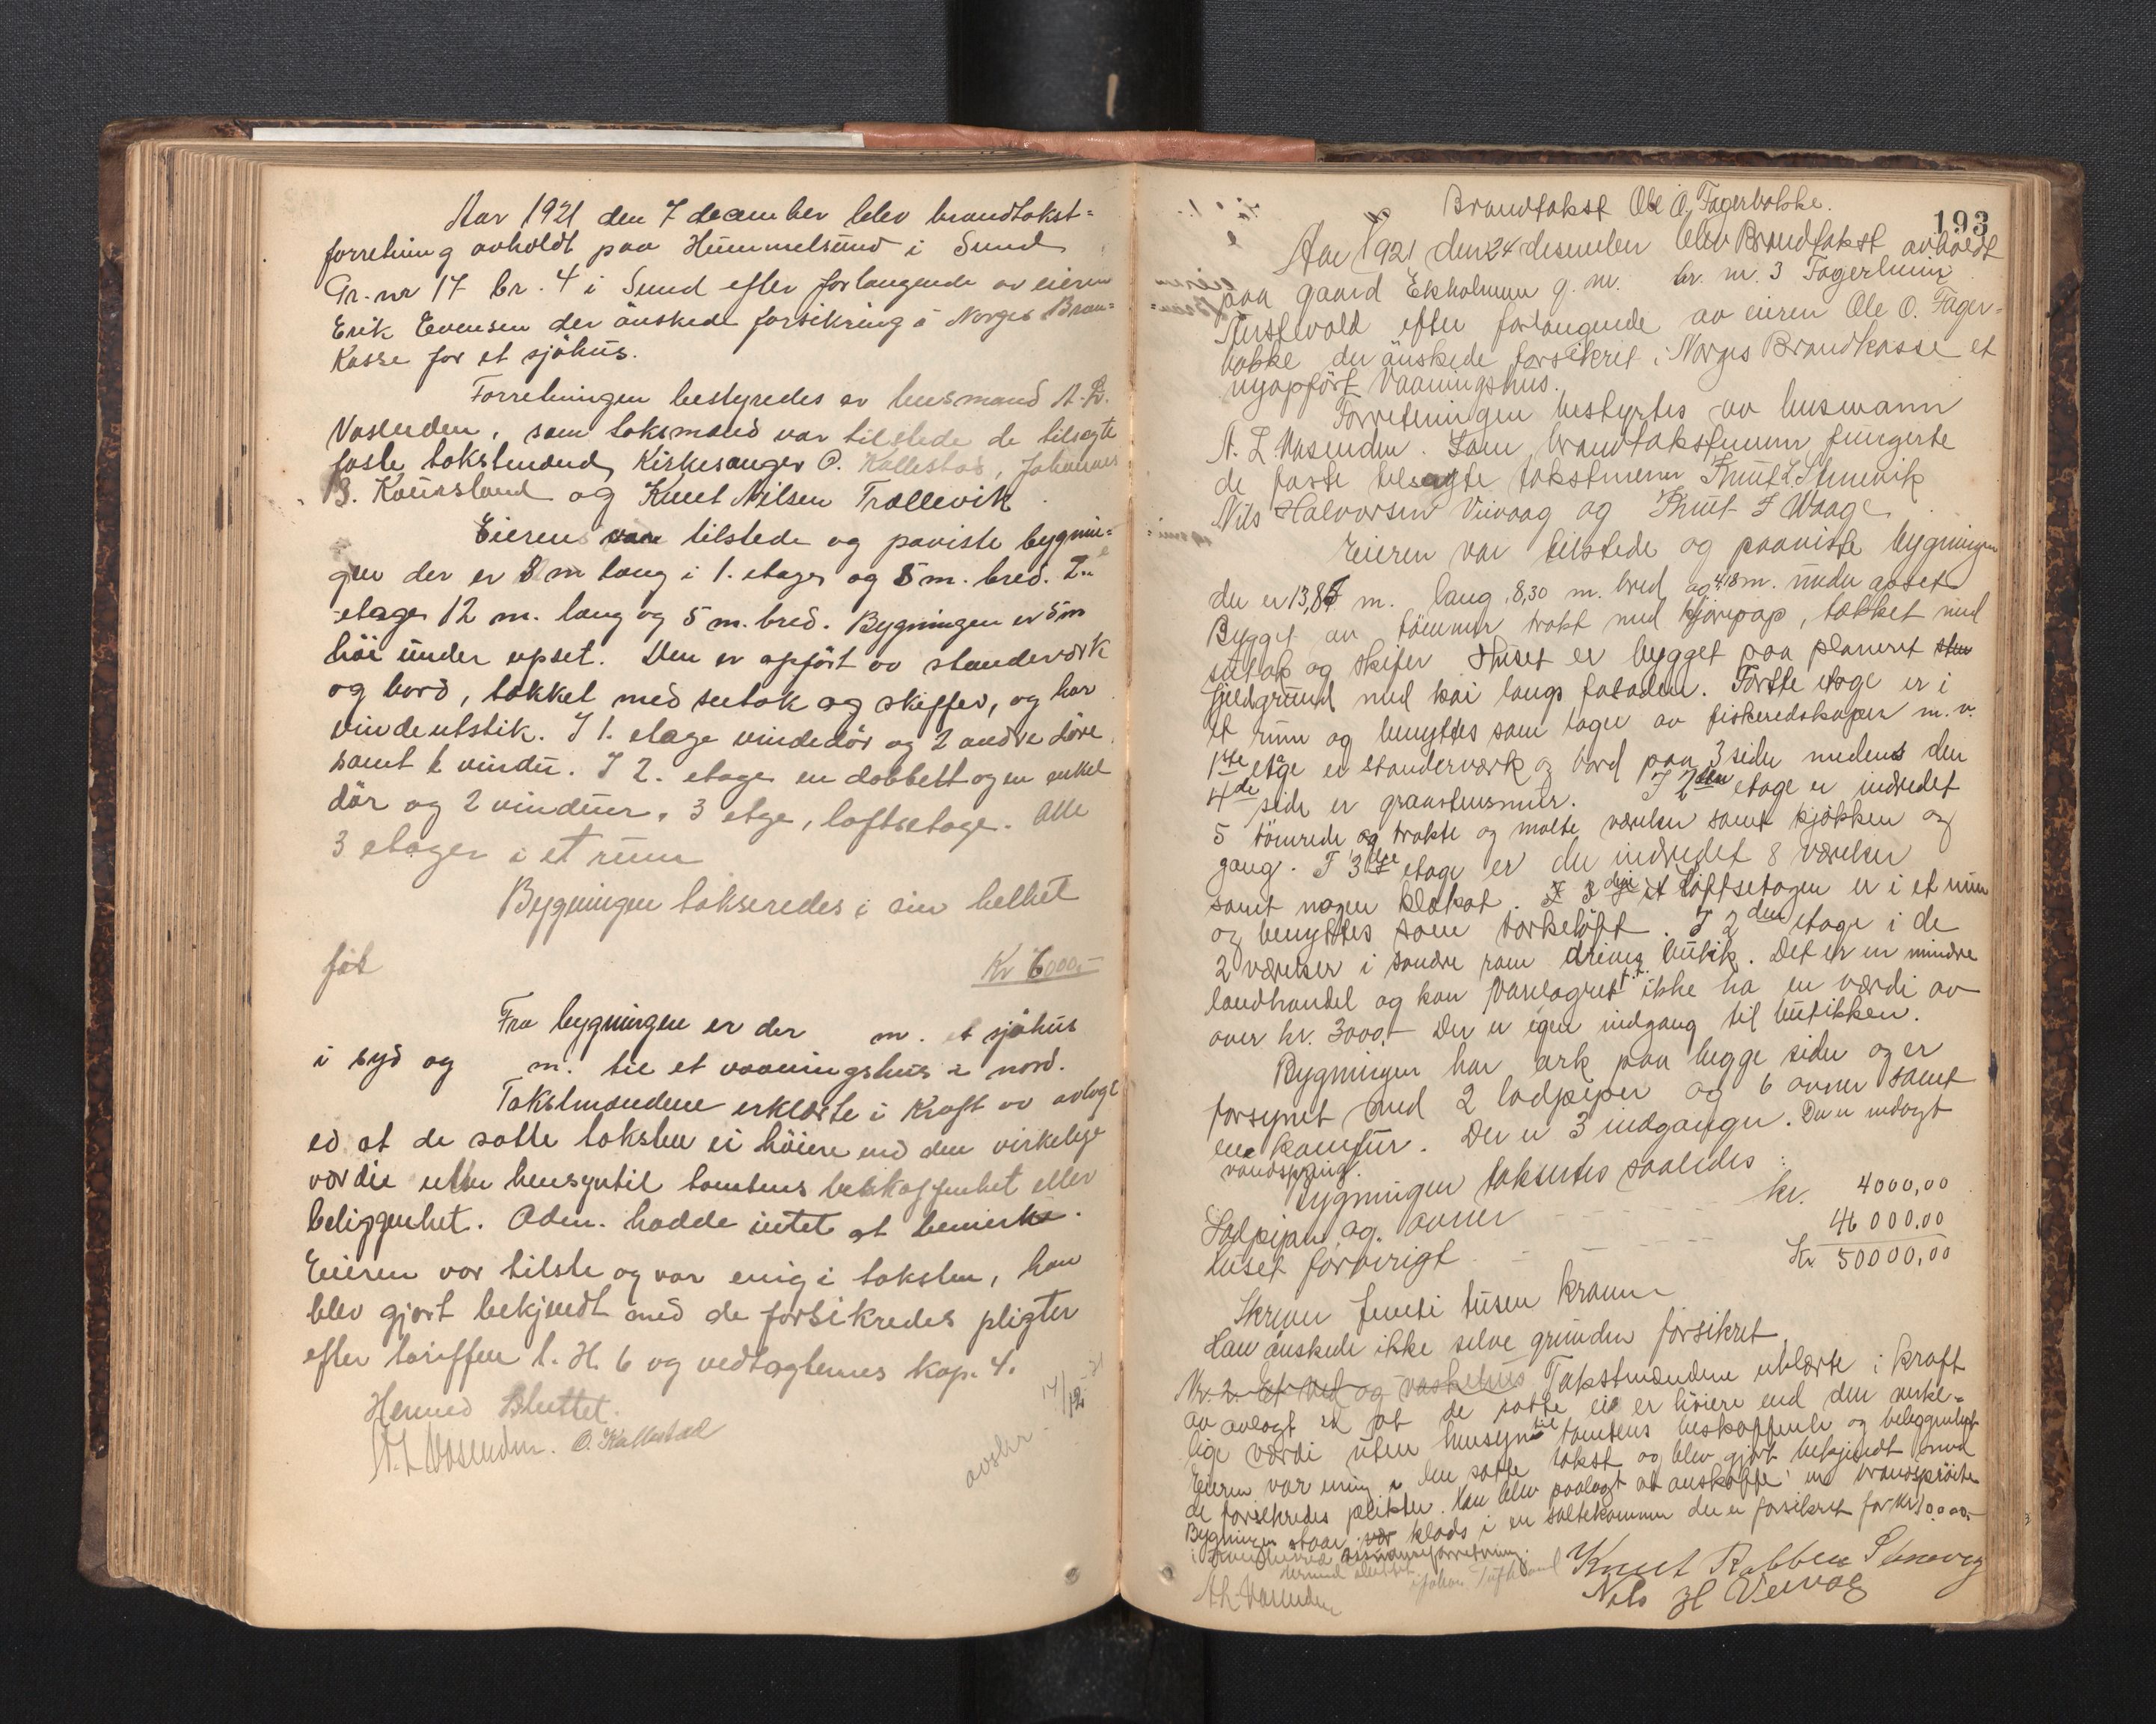 Aar 1921 den 7 december blev brandtakst=
forretning avholdt paa Hummelsund i Sund
Gr. nr 17 br. 4 i Sund efter forlangende av eieren
Erik Evensen der önskede forsikring i Norges Bran=
kasse for et sjöhus.
Forretningen bestyredes av lensmand A. L.
Vasenden, som taksmænd var tilstede de tilsagte
faste takstmænd, Kirkesanger O. Kallestad, Johannes
B. Kausland og Knut Nilsen Trællevik
Eieren var tilstede og paviste bygnin=
gen der er 8 m lang i 1. etage og 5 m. bred. 2.
etage 12 m. lang og 5 m. bred. Bygningen er 5 m
höi under opset. Den er opfört av standerværk
og bord, tækket med sutak og skiffer, og har
vindeutstik. I 1. etage vindedör og 2 andre döre
samt 1 vindu. I 2. etage en dobbelt og en enkel
dör og 2 vinduer. 3 etge, loftsetage. Alle
3 etager i et rum
Bygningen takseredes i sin helhet
for
Kr 6000.-
Fra bygningen er der m. et sjöhus
i syd og m. til et vaaningshus i nord.
Takstmændene erklærte i Kraft av avlagt
ed at de satte takster ei höiere end den virkelige
værdie uten hensyn til tomtens beskaffenhet eller
beliggenhet. Adm. hadde intet at bemerke.
Eieren var tilste og var enig i taksten, han
blev gjort bekjendt med de forsikredes pligter
efter tariffen l. H. 6 og vedtægternes kap. 4.
Hermed Sluttet.
A. L. Vasenden. O. Kallestad
avskr. 17/12-21
193
Brandtakst Ole O. Fagerbakke.
Aar 1921 den 24 desember blev Brandtakst avholdt
paa gaard Ekholmen g. nr. br. nr. 3 Fagerheim
Austevold efter forlangende av eieren Ole O. Fager-
bakke der önskede forsikret i Norges Brandkasse et
nyopfört Vaaningshus.
Forretningen bestyrtes av lensmann
A. L. Vasenden. Som brandtakstmenn fungerte
de faste tilsagte takstmenn Knut L Stenevik
Nils Halvorsen Veivaag og Knut J Waage
Eieren var tilstede og paaviste bygningen
der er 13,87 m. lang, 8,30 m. bred og 4,18 m. under opset
Bygget av tömmer trækt med tjærepap, tækket med
sutak og skifer Huset er bygget paa planeret
fjeldgrund med kai langs fasaden. Förste etage er i
et rum og benyttes som lager av fiskeredskaper m. v.
1ste etage er standerværk og bord paa 3 sider medens den
4de side er graastensmur. I 2den etage er indredet
5 tömrede og trækte og malte værelser samt kjökken og
gang. I 3dje etage er der indredet 8 værelser
samt nogen kläkot. I 3dje et Loftsetagen er i et rum
og benyttes som törkeloft. I 2den etage i de
2 værelser i söndre ram drives butik. Det er en mindre
landhandel og kan varelagret f. t. ikke ha en værdi av
over kr. 3000,- Der er egen indgang til butikken.
Bygningen har ark paa begge sider og er
forsynet med 2 ladpiper og 6 ovner samt
en komfur. Der er 3 indganger. Der er indlagt
vandspring.
Bygningen takseres saaledes:
Ladpiper og ovner kr. 4000,00
Huset forövrigt 46 000,00
Kr. 50000,00
Skriver femti tusen kroner
Han önskede ikke selve grunden forsikret
Nr. 2. Et ved og vaskehus Takstmændene erklærte i kraft
av avlagt ed at de satte ei er höiere end den virke-
lige værdi uten hensyn til tomtens beskaffenhet og beliggenhet
Eieren var enig i den satte takst og blev gjort bekjendt med
de forsikredes plikter. Han blev paalagt at anskaffe en brandspröite
Bygningen staar klods i en saltekammer der er forsikret for kr 10000.-
Hermed sluttet
A L Vasenden
Knut Rabben Stenevig
Nils H Veivåg